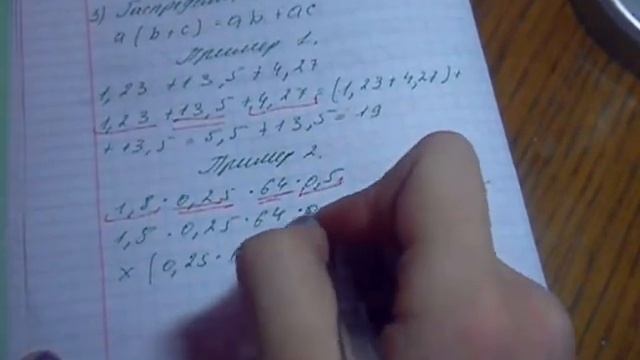 3) Распредели
a(b+c) = ab + ac
Пример 1.
1,23 + 13,5 + 4,27
1,23 + 13,5 + 4,27 = (1,23 + 4,27) +
+ 13,5 = 5,5 + 13,5 = 19
Пример 2.
1,8 · 0,25 · 64 · 0,5
1,8 · 0,25 · 64 ·
× (0,25 ·